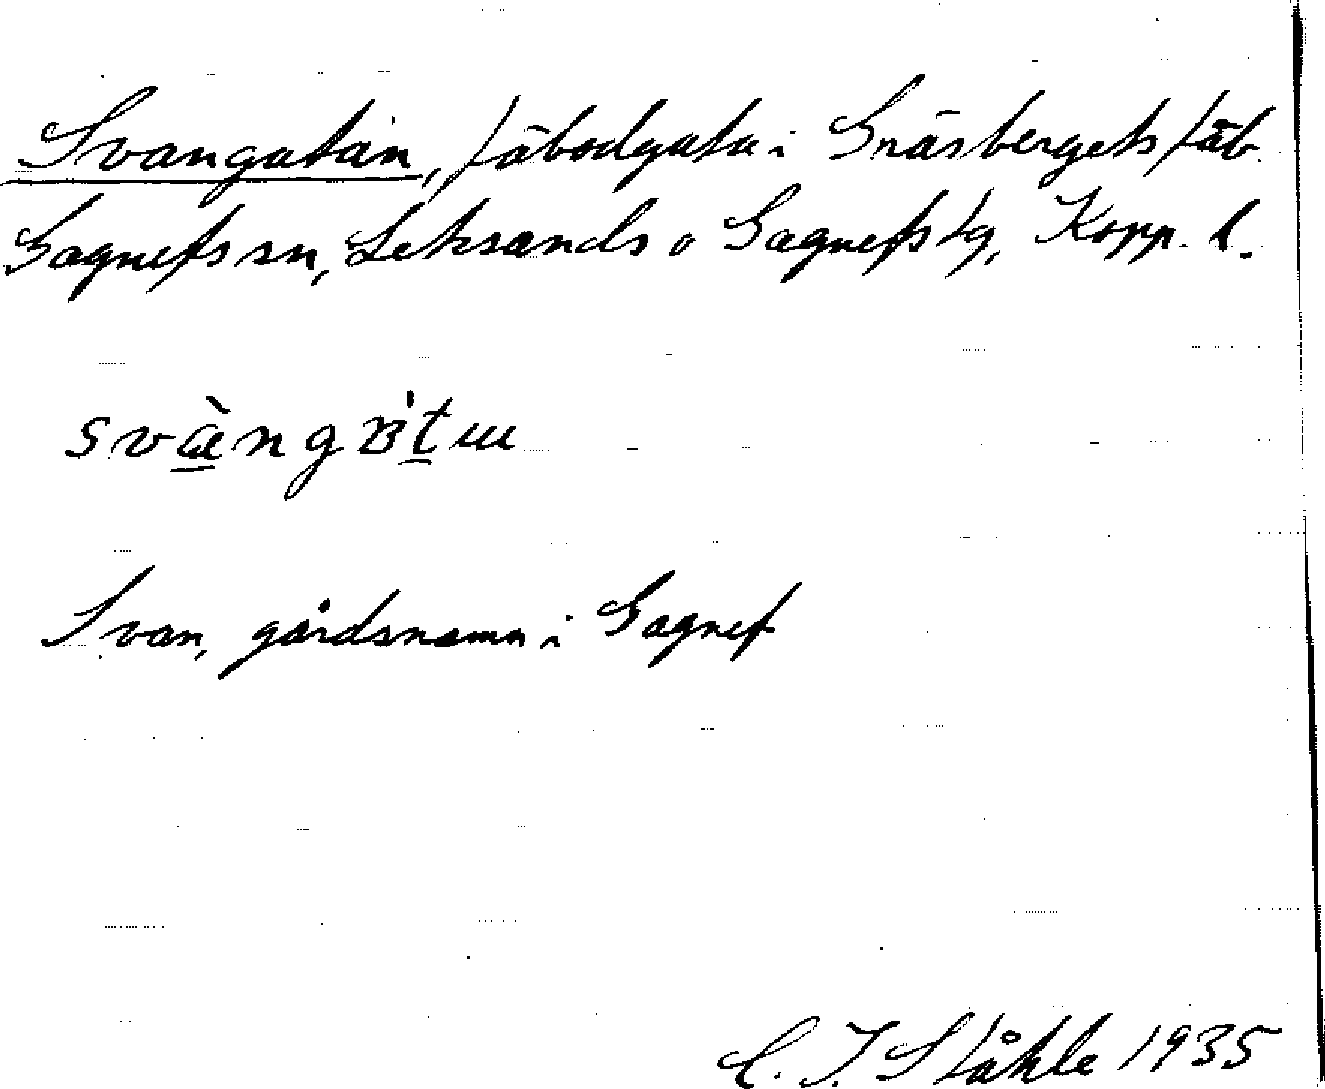 Svangatan, fäbodgata i Gräsbergets fäb.
Gagnefs sn, Leksands o Gagnefs tg, Kopp. l.
Svan, gårdsnamn i Gagnef
C. I. Ståhle 1935